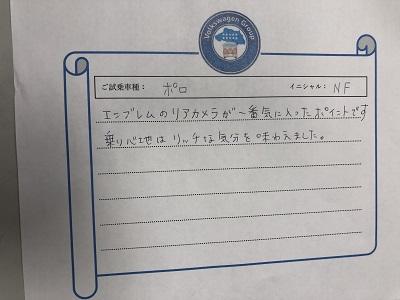 Volkswagen Group
ご試乗車種： ポロ イニシャル： NF
エンブレムのリアカメラが一番気に入ったポイントです
乗り心地はリッチな気分を味わえました。